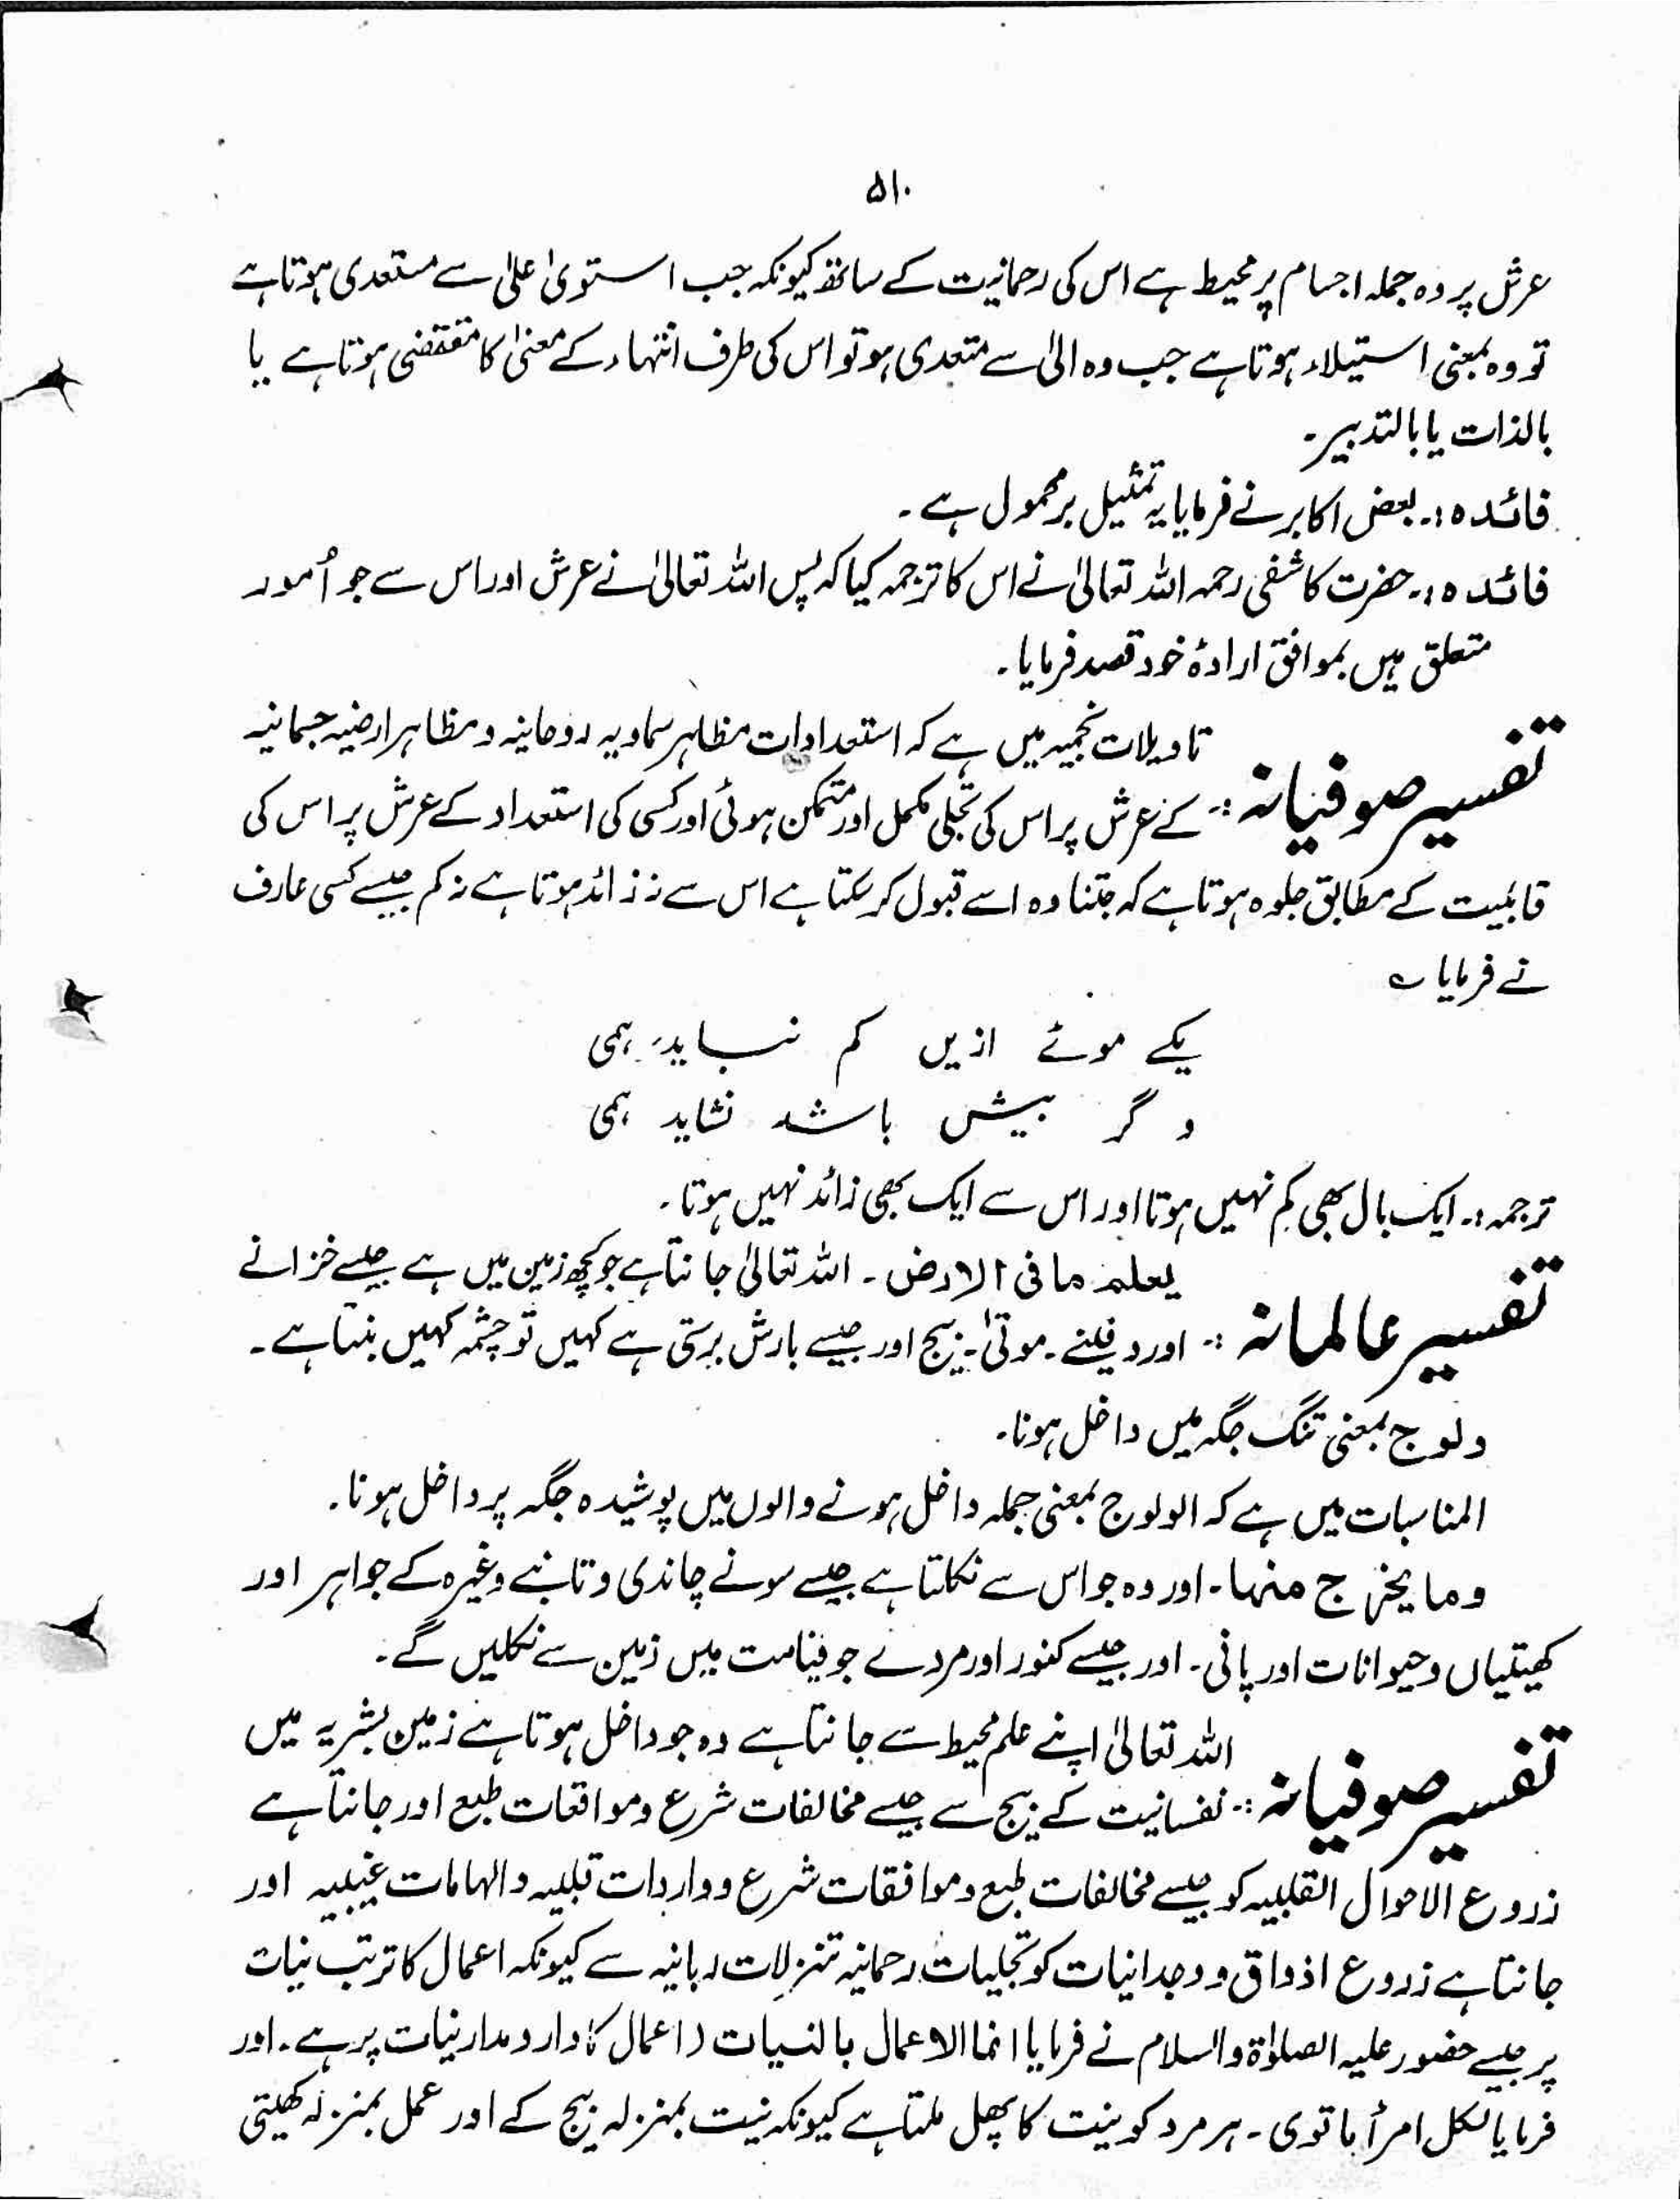 ۵۱۰
عرش پر وہ جملہ اجسام پر محیط ہے اس کی رحمانیت کے ساتھ کیونکہ جب استویٰ اعلیٰ سے متعدی ہوتا ہے
تو وہ بمعنی استیلاء ہوتا ہے جب وہ الیٰ سے متعدی ہو تو اس کی طرف انتہاء کے معنیٰ کا متقضی ہوتا ہے یا
بالذات یا بالتدبیر۔
فائدہ :۔ بعض اکابر نے فرمایا یہ تمثیل پر محمول ہے۔
فائدہ :۔ حضرت کاشفی رحمہ اللہ تعالیٰ نے اس کا ترجمہ کیا کہ پس اللہ تعالیٰ نے عرش اور اس سے جو اُمور
متعلق ہیں بموافق ارادۂ خود قصد فرمایا۔
تفسیر صوفیانہ :۔ تاویلات نجمیہ میں ہے کہ استعدادات مظاہر سماویہ روحانیہ و مظاہر ارضیہ جسمانیہ
کے عرش پر اس کی تجلی مکمل اور متمکن ہوئی اور کسی کی استعداد کے عرش پر اس کی
قابلیت کے مطابق جلوہ ہوتا ہے کہ جتنا وہ اسے قبول کر سکتا ہے اس سے نہ زائد ہوتا ہے نہ کم جیسے کسی عارف
نے فرمایا ؎
یکے موئے ازیں کم نباید ہمی
وگر بیش باشد نشاید ہمی
ترجمہ :۔ ایک بال بھی کم نہیں ہوتا اور اس سے ایک بھی زائد نہیں ہوتا۔
تفسیر عالمانہ :۔ یعلم ما فی الارض ۔ اللہ تعالیٰ جانتا ہے جو کچھ زمین میں ہے جیسے خزانے
اور دفینے ۔ موتیٰ ۔ بیج اور جیسے بارش برستی ہے کہیں تو چشمہ کہیں بنتا ہے۔
ولوج بمعنی تنگ جگہ میں داخل ہونا۔
المناسبات میں ہے کہ الولوج بمعنی جملہ داخل ہونے والوں میں پوشیدہ جگہ پر داخل ہونا۔
وما یخرج منہا ۔ اور وہ جو اس سے نکلتا ہے جیسے سونے چاندی و تانبے وغیرہ کے جواہر اور
کھیتیاں و حیوانات اور پانی ۔ اور جیسے کنوز اور مردے جو قیامت میں زمین سے نکلیں گے۔
تفسیر صوفیانہ :۔ اللہ تعالیٰ اپنے علم محیط سے جانتا ہے وہ جو داخل ہوتا ہے زمین بشریہ میں
نفسانیت کے بیج سے جیسے مخالفات شرع و موافعات طبع اور جانتا ہے
زروع الاحوال القلبیہ کو جیسے مخالفات طبع و موافقات شرع و واردات قلبیہ و الہامات غیبیہ اور
جانتا ہے زروع اذواق و وجدانیات کو تجلیات رحمانیہ تنزلات ربانیہ سے کیونکہ اعمال کا ترتب نیات
پر جیسے حضور علیہ الصلوٰۃ والسلام نے فرمایا انما الاعمال بالنیات (اعمال کا دارومدار نیات پر ہے۔ اور
فرمایا لکل امرأ ما نوی ۔ ہر مرد کو نیت کا پھل ملتا ہے کیونکہ نیت بمنزلہ بیج کے اور عمل بمنزلہ کھیتی